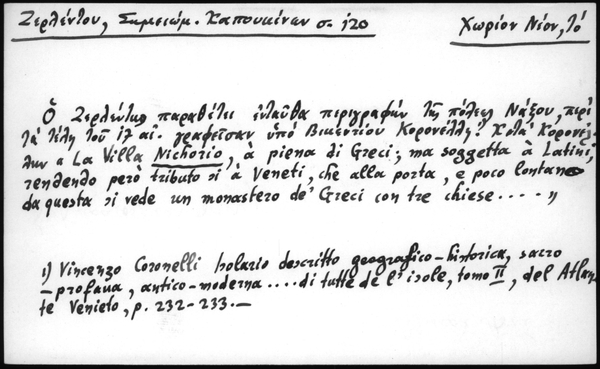 Ζερλέντου, Σημειώμ. Καπουκίνων σ. 120
Χωρίον Νέον, τό
Ὁ Ζερλέντης παραθέτει ἐνταῦθα περιγραφήν τῆς πόλεως Νάξου, περί
τά τέλη τοῦ ιζ αἰ. γραφεῖσαν ὑπό Βικεντίου Κορονέλλη.¹ Κατά Κορονέλ-
λην « La Villa Nichorio, à piena di Greci; ma soggetta à Latini,
rendendo però tributo si à Veneti, che alla porta, e poco lontano
da questa si vede un monastero de' Greci con tre chiese .... »
1) Vincenzo Coronelli Isolario descritto geografico-historica, sacro
-profana, antico-moderna .... di tutte de l'isole, tomo II, del Atlan-
te Veneto, p. 232-233.—